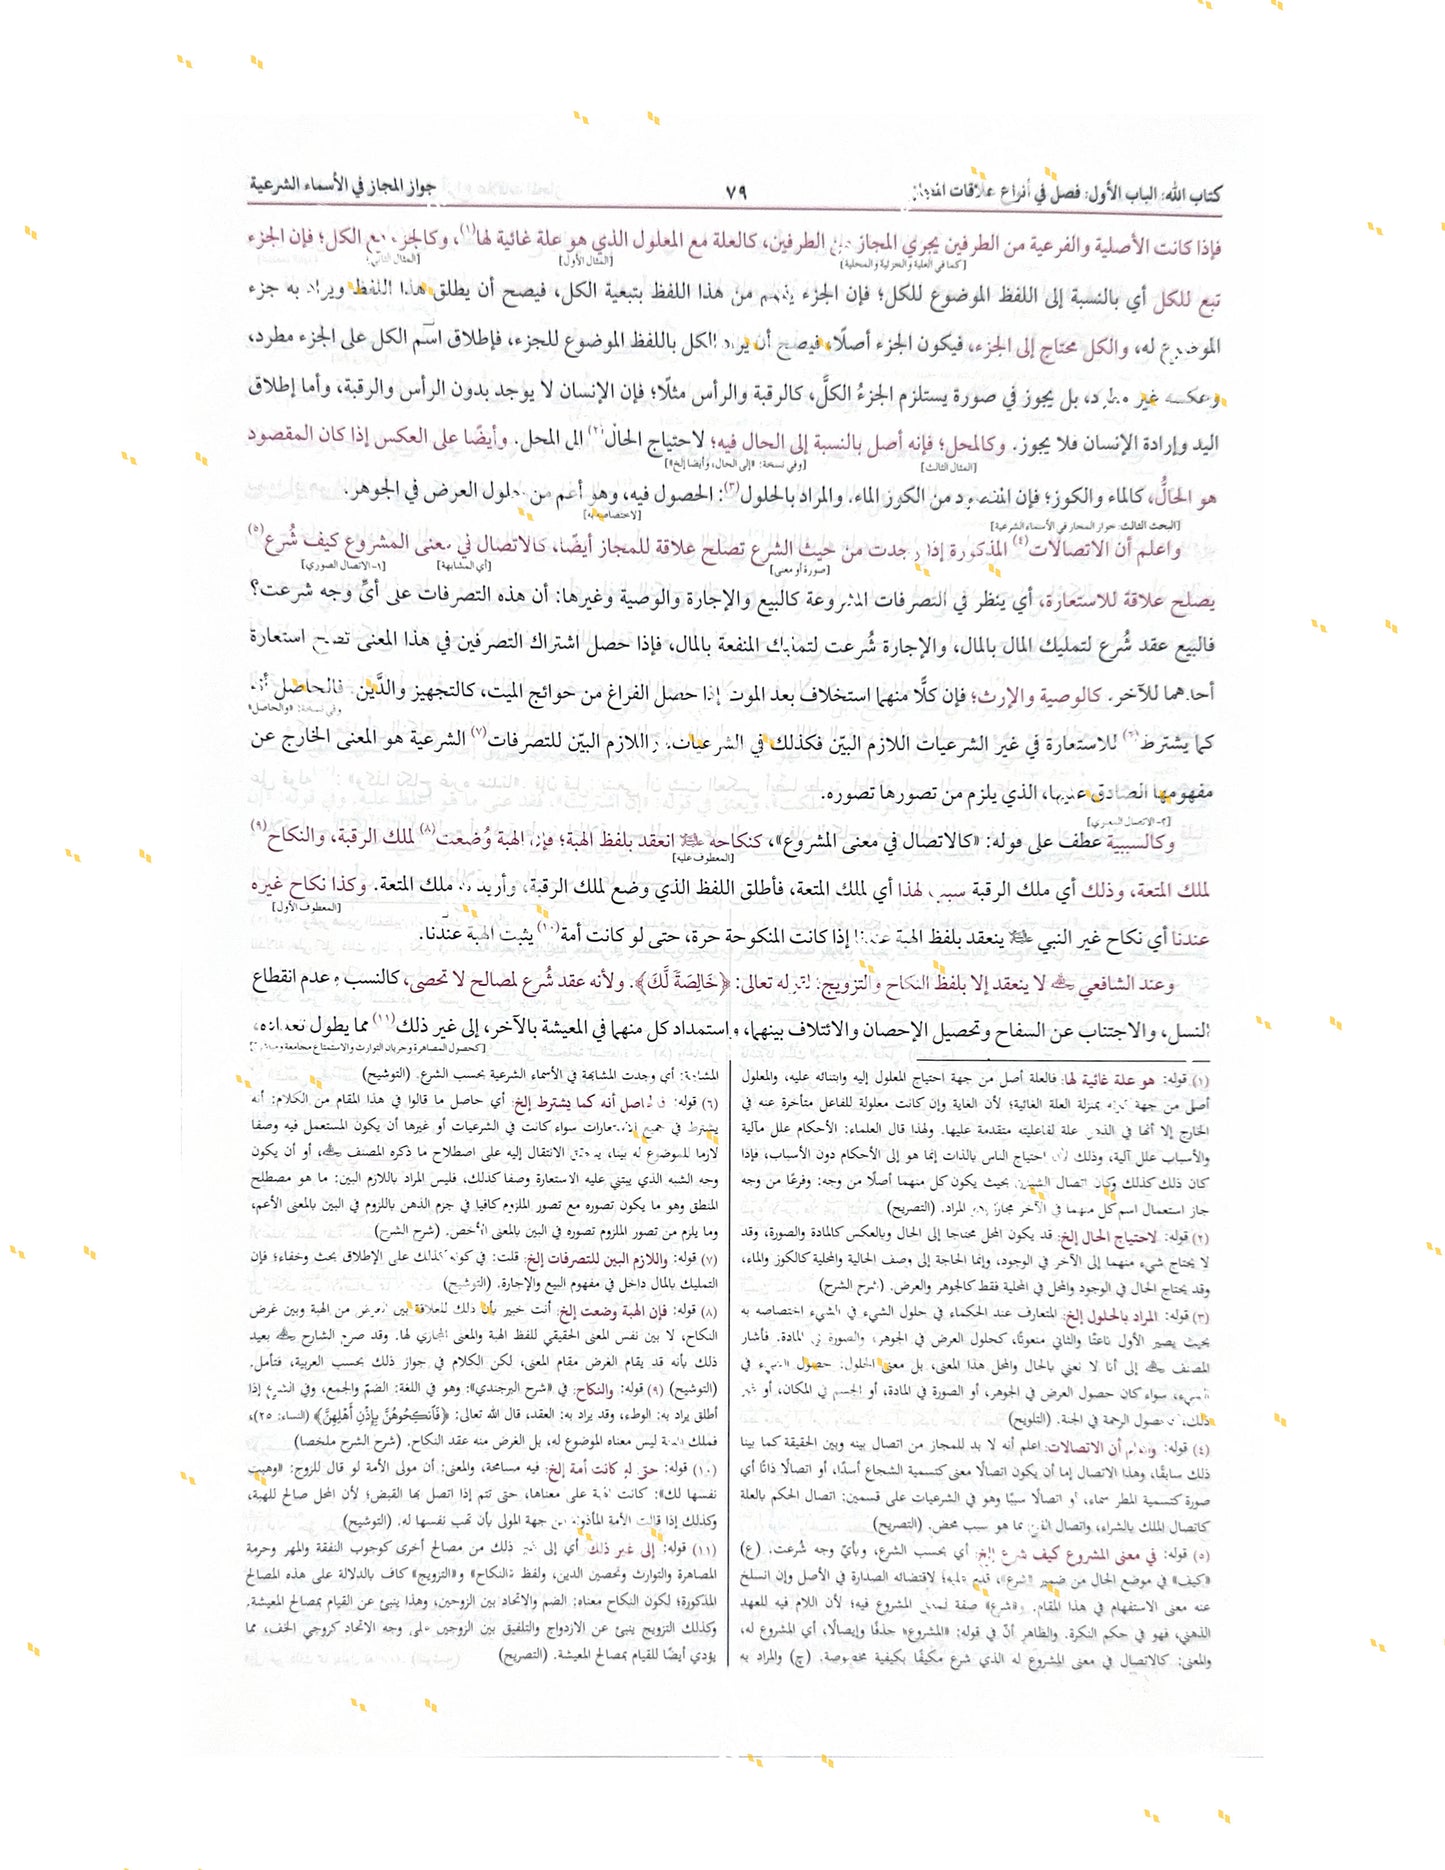 كتاب الله: الباب الأول: فصل في أنواع علاقات المجاز
٧٩
جواز المجاز في الأسماء الشرعية
فإذا كانت الأصلية والفرعية من الطرفين يجري المجاز من الطرفين، كالعلة مع المعلول الذي هو علة غائية لها(١)، وكالجزء مع الكل؛ فإن الجزء
[كما في العلية والجزئية والمحلية] [المثال الأول] [المثال الثاني]
تبع للكل أي بالنسبة إلى اللفظ الموضوع للكل؛ فإن الجزء يفهم من هذا اللفظ بتبعية الكل، فيصح أن يطلق هذا اللفظ ويراد به جزء
الموضوع له، والكل محتاج إلى الجزء، فيكون الجزء أصلًا، فيصح أن يراد الكل باللفظ الموضوع للجزء، فإطلاق اسم الكل على الجزء مطرد،
وعكسه غير مطرد، بل يجوز في صورة يستلزم الجزءُ الكلَّ، كالرقبة والرأس مثلًا؛ فإن الإنسان لا يوجد بدون الرأس والرقبة، وأما إطلاق
اليد وإرادة الإنسان فلا يجوز. وكالمحل؛ فإنه أصل بالنسبة إلى الحال فيه؛ لاحتياج الحال(٢) إلى المحل. وأيضًا على العكس إذا كان المقصود
[المثال الثالث] [وفي نسخة: «إلى الحال، وأيضا إلخ»]
هو الحالُّ، كالماء والكوز؛ فإن المقصود من الكوز الماء. والمراد بالحلول(٣): الحصول فيه، وهو أعم من حلول العرض في الجوهر.
[البحث الثالث: جواز المجاز في الأسماء الشرعية] [لاختصاصه به]
واعلم أن الاتصالات(٤) المذكورة إذا وجدت من حيث الشرع تصلح علاقة للمجاز أيضًا، كالاتصال في معنى المشروع كيف شُرع(٥)
[صورة أو معنى] [أي المشابهة] [١- الاتصال الصوري]
يصلح علاقة للاستعارة، أي ينظر في التصرفات المشروعة كالبيع والإجارة والوصية وغيرها: أن هذه التصرفات على أيِّ وجه شرعت؟
فالبيع عقد شُرع لتمليك المال بالمال، والإجارة شُرعت لتمليك المنفعة بالمال، فإذا حصل اشتراك التصرفين في هذا المعنى تصح استعارة
أحدهما للآخر. كالوصية والإرث؛ فإن كلًّا منهما استخلاف بعد الموت إذا حصل الفراغ من حوائج الميت، كالتجهيز والدَّين. فالحاصل أنه
وفي نسخة: «والحاصل»
كما يشترط(٦) للاستعارة في غير الشرعيات اللازم البيّن فكذلك في الشرعيات. واللازم البيّن للتصرفات(٧) الشرعية هو المعنى الخارج عن
مفهومها الصادق عليها، الذي يلزم من تصورها تصوره.
[٢- الاتصال المعنوي]
وكالسببية عطف على قوله: «كالاتصال في معنى المشروع»، كنكاحه ﷺ انعقد بلفظ الهبة؛ فإن الهبة وُضعت(٨) لملك الرقبة، والنكاح(٩)
[المعطوف عليه]
لملك المتعة، وذلك أي ملك الرقبة سبب لهذا أي لملك المتعة، فأطلق اللفظ الذي وضع لملك الرقبة، وأريد به ملك المتعة. وكذا نكاح غيره
[المعطوف الأول]
عندنا أي نكاح غير النبي ﷺ ينعقد بلفظ الهبة عندنا إذا كانت المنكوحة حرة، حتى لو كانت أمة(١٠) يثبت الهبة عندنا.
وعند الشافعي لا ينعقد إلا بلفظ النكاح والتزويج؛ لقوله تعالى: ﴿خَالِصَةً لَّكَ﴾. ولأنه عقد شُرع لمصالح لا تحصى، كالنسب وعدم انقطاع
النسل، والاجتناب عن السفاح وتحصيل الإحصان والائتلاف بينهما، واستمداد كل منهما في المعيشة بالآخر، إلى غير ذلك(١١) مما يطول تعداده،
[كحصول المصاهرة وجريان التوارث والاستمتاع مجامعة
(١) قوله: هو علة غائية لها: فالعلة أصل من جهة احتياج المعلول إليه وابتنائه عليه، والمعلول
أصل من جهة كونه بمنزلة العلة الغائية؛ لأن الغاية وإن كانت معلولة للفاعل متأخرة عنه في
الخارج إلا أنها في الذهن علة لفاعليته متقدمة عليها. ولهذا قال العلماء: الأحكام علل مآلية
والأسباب علل آلية، وذلك لأن احتياج الناس بالذات إنما هو إلى الأحكام دون الأسباب، فإذا
كان ذلك كذلك وكان اتصال الشيئين بحيث يكون كل منهما أصلًا من وجه: وفرعًا من وجه
جاز استعمال اسم كل منهما في الآخر مجازا وهو المراد. (التصريح)
(٢) قوله: لاحتياج الحال إلخ: قد يكون المحل محتاجا إلى الحال وبالعكس كالمادة والصورة، وقد
لا يحتاج شيء منهما إلى الآخر في الوجود، وإنما الحاجة إلى وصف الحالية والمحلية كالكوز والماء،
وقد يحتاج الحال في الوجود والمحل في المحلية فقط كالجوهر والعرض. (شرح الشرح)
(٣) قوله: المراد بالحلول إلخ: المتعارف عند الحكماء في حلول الشيء في الشيء اختصاصه به
بحيث يصير الأول ناعتًا والثاني منعوتًا، كحلول العرض في الجوهر، والصورة في المادة. فأشار
المصنف إلى أنا لا نعني بالحال والمحل هذا المعنى، بل معنى الحلول: حصول الشيء في
الشيء، سواء كان حصول العرض في الجوهر، أو الصورة في المادة، أو الجسم في المكان، أو غير
ذلك، كحصول الرحمة في الجنة. (التلويح)
(٤) قوله: واعلم أن الاتصالات: اعلم أنه لا بد للمجاز من اتصال بينه وبين الحقيقة كما بينا
ذلك سابقًا، وهذا الاتصال إما أن يكون اتصالًا معنى كتسمية الشجاع أسدًا، أو اتصالًا ذاتًا أي
صورة كتسمية المطر سماء، أو اتصالًا سببًا وهو في الشرعيات على قسمين: اتصال الحكم بالعلة
كاتصال الملك بالشراء، واتصال الفرع بما هو سبب محض. (التصريح)
(٥) قوله: في معنى المشروع كيف شرع إلخ: أي بحسب الشرع، وبأيّ وجه شُرعت. (ع)
«كيف» في موضع الحال من ضمير «شرع»، قدم عليه؛ لاقتضائه الصدارة في الأصل وإن انسلخ
عنه معنى الاستفهام في هذا المقام. و«شرع» صفة لمعنى المشروع فيه؛ لأن اللام فيه للعهد
الذهني، فهو في حكم النكرة. والظاهر أنّ في قوله: «المشروع» حذفًا وإيصالًا، أي المشروع له،
والمعنى: كالاتصال في معنى المشروع له الذي شرع مكيفًا بكيفية مخصوصة. (چ) والمراد به
المشابهة: أي وجدت المشابهة في الأسماء الشرعية بحسب الشرع. (التوشيح)
(٦) قوله: فالحاصل أنه كما يشترط إلخ: أي حاصل ما قالوا في هذا المقام من الكلام: أنه
يشترط في جميع الاستعارات سواء كانت في الشرعيات أو غيرها أن يكون المستعمل فيه وصفا
لازما للموضوع له بينا، يتحقق الانتقال إليه على اصطلاح ما ذكره المصنف، أو أن يكون
وجه الشبه الذي يبتني عليه الاستعارة وصفا كذلك، فليس المراد باللازم البين: ما هو مصطلح
المنطق وهو ما يكون تصوره مع تصور الملزوم كافيا في جزم الذهن باللزوم في البين بالمعنى الأعم،
وما يلزم من تصور الملزوم تصوره في البين بالمعنى الأخص. (شرح الشرح)
(٧) قوله: واللازم البين للتصرفات إلخ: قلت: في كونه كذلك على الإطلاق بحث وخفاء؛ فإن
التمليك بالمال داخل في مفهوم البيع والإجارة. (التوشيح)
(٨) قوله: فإن الهبة وضعت إلخ: أنت خبير بأن ذلك للعلاقة بين الغرض من الهبة وبين غرض
النكاح، لا بين نفس المعنى الحقيقي للفظ الهبة والمعنى المجازي لها. وقد صرح الشارح بعيد
ذلك بأنه قد يقام الغرض مقام المعنى، لكن الكلام في جواز ذلك بحسب العربية، فتأمل.
(التوشيح) (٩) قوله: والنكاح: في «شرح البرجندي»: وهو في اللغة: الضمّ والجمع، وفي الشرع إذا
أطلق يراد به: الوطء، وقد يراد به: العقد، قال الله تعالى: ﴿فَٱنكِحُوهُنَّ بِإِذْنِ أَهْلِهِنَّ﴾ (النساء: ٢٥)،
فملك المتعة ليس معناه الموضوع له، بل الغرض منه عقد النكاح. (شرح الشرح ملخصا)
(١٠) قوله: حتى لو كانت أمة إلخ: فيه مسامحة، والمعنى: أن مولى الأمة لو قال للزوج: «وهبت
نفسها لك»: كانت الهبة على معناها، حتى تتم إذا اتصل بها القبض؛ لأن المحل صالح للهبة،
وكذلك إذا قالت الأمة المأذونة من جهة المولى بأن تهب نفسها له. (التوشيح)
(١١) قوله: إلى غير ذلك: أي إلى غير ذلك من مصالح أخرى كوجوب النفقة والمهر وحرمة
المصاهرة والتوارث وتحصين الدين، ولفظ «النكاح» و«التزويج» كاف بالدلالة على هذه المصالح
المذكورة؛ لكون النكاح معناه: الضم والاتحاد بين الزوجين، وهذا ينبئ عن القيام بمصالح المعيشة.
وكذلك التزويج ينبئ عن الازدواج والتلفيق بين الزوجين على وجه الاتحاد كزوجي الخف، مما
يؤدي أيضًا للقيام بمصالح المعيشة. (التصريح)